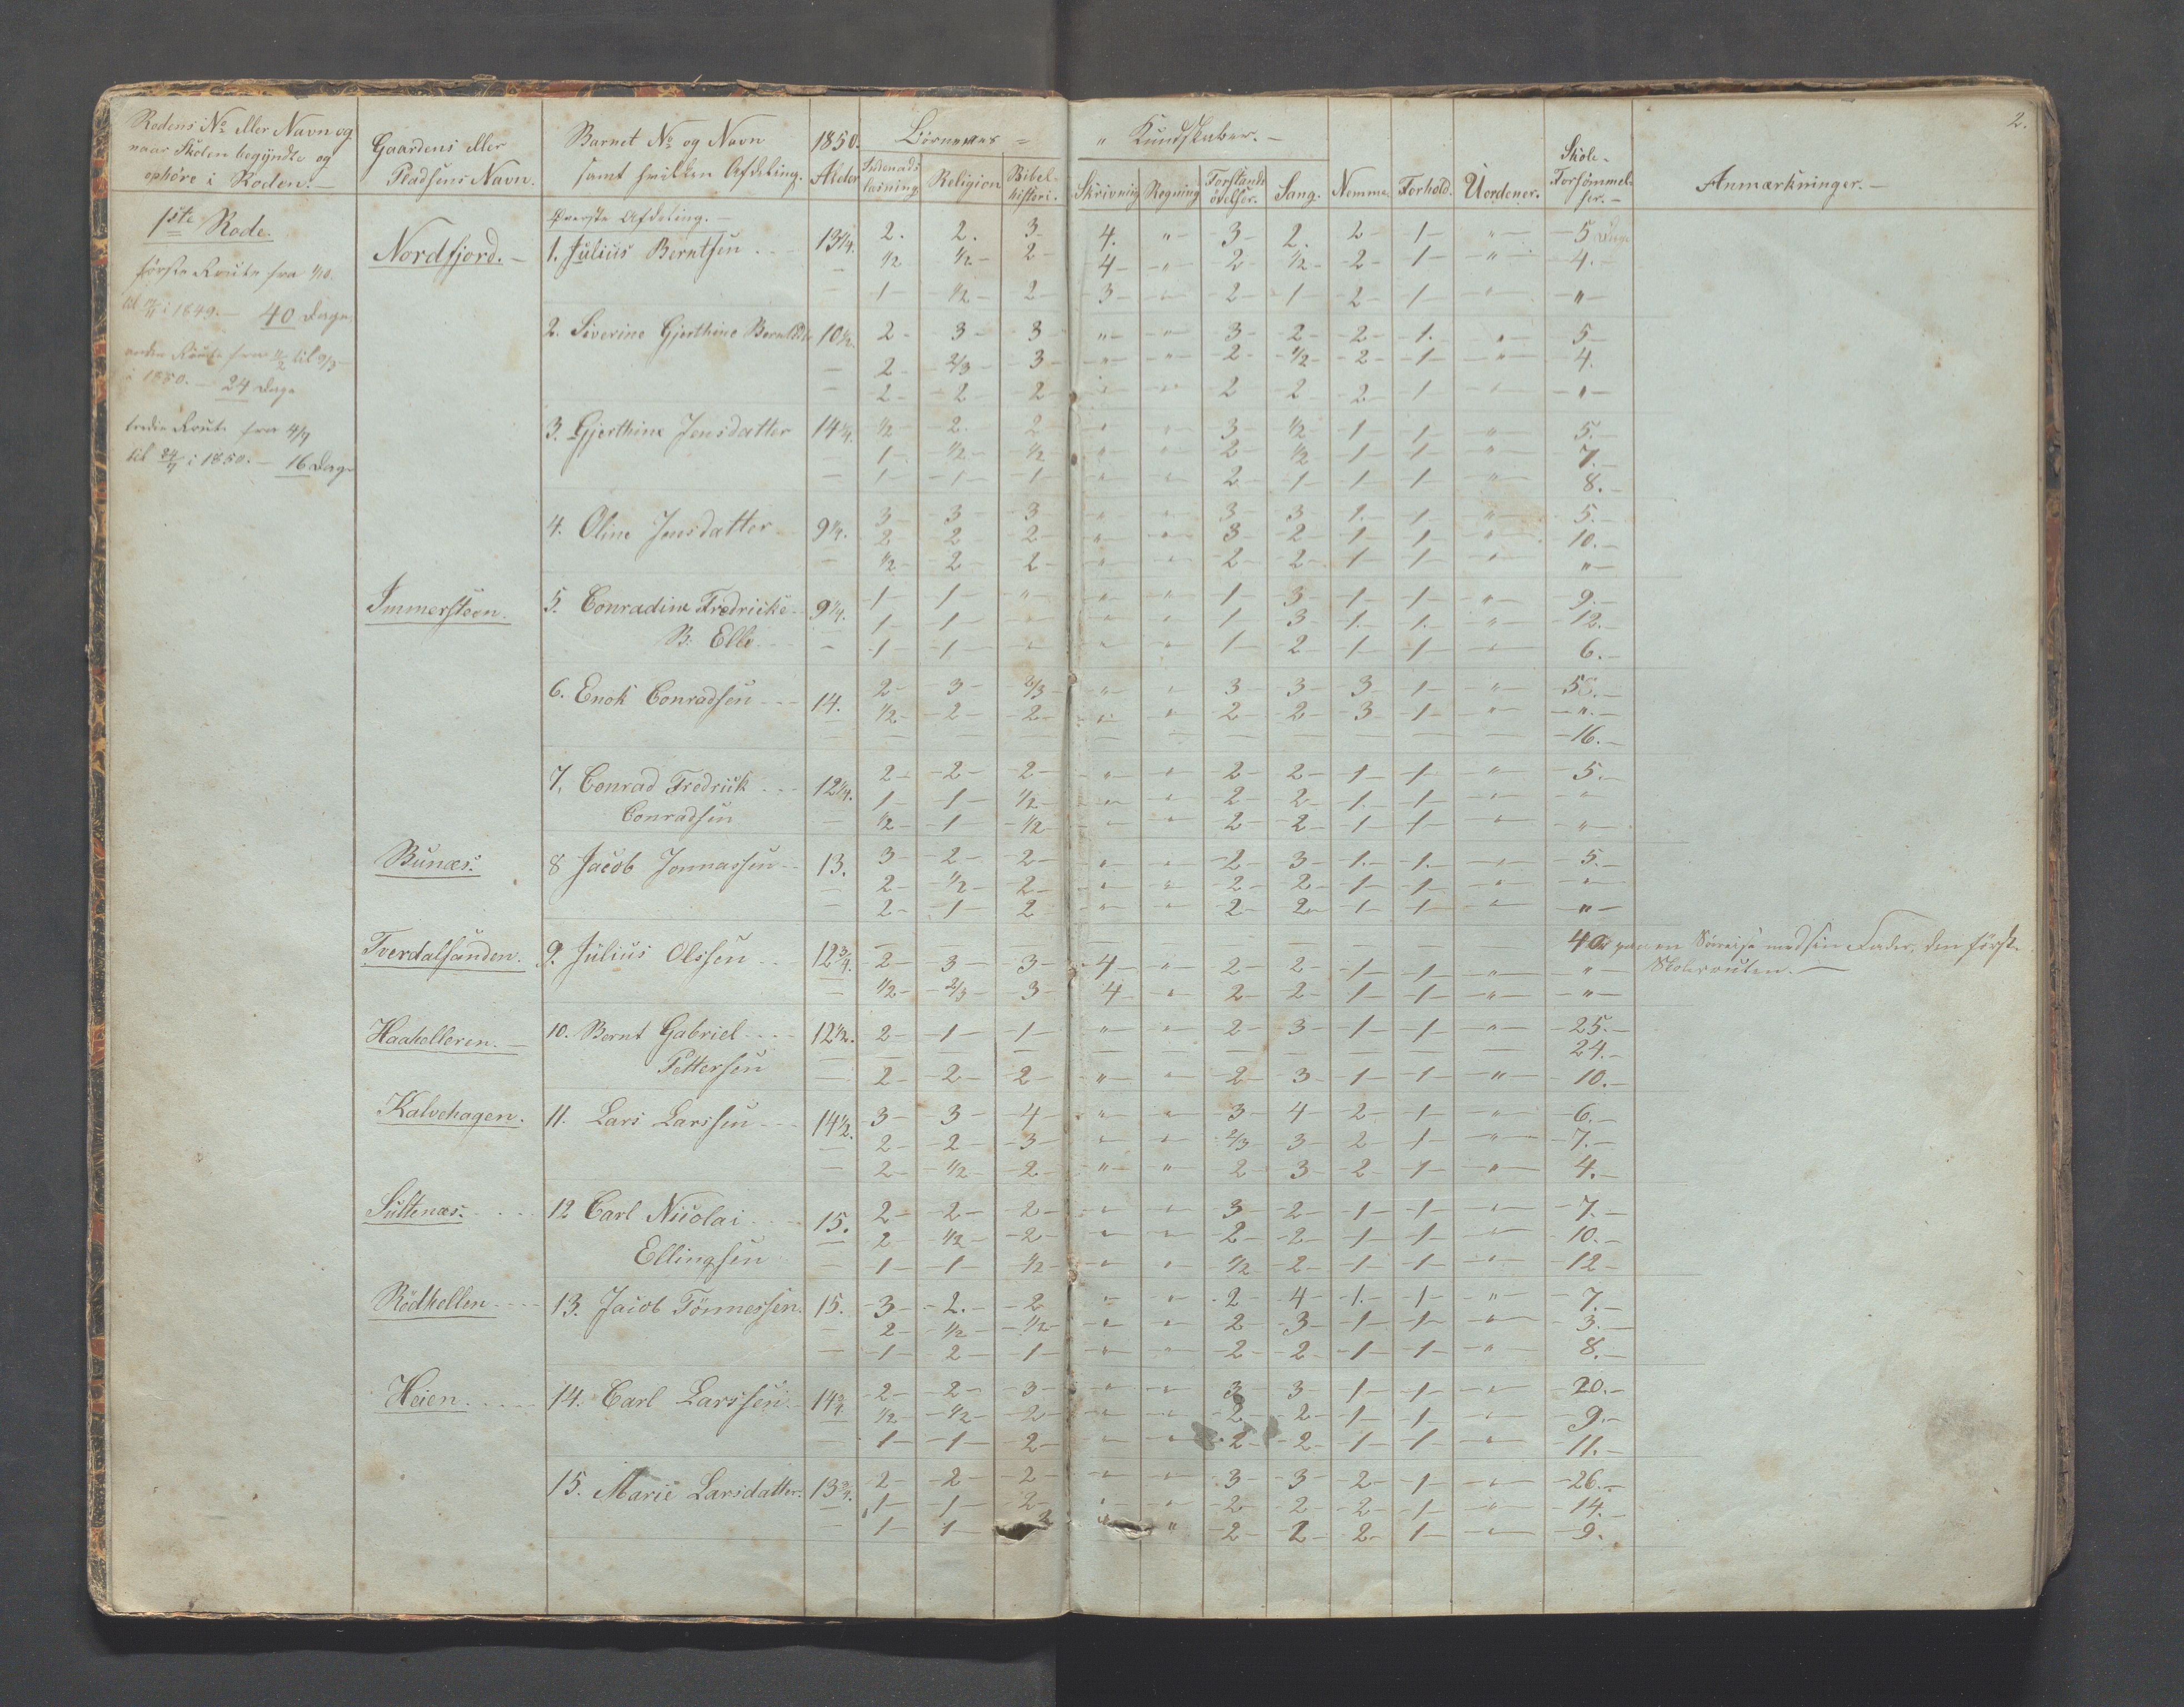 2.
Rodens No eller Navn og
naar Skolen begyndte og
ophøre i Roden.—
Gaardens eller
Pladsens Navn.
Barnet No og Navn
samt hvilken Afdeling.
1850.
Alder
Börnenes =
" Kundskaber.—
Indenads
læsning
Religion
Bibel-
histori.
Skrivning
Regning
Forstands
övelser.
Sang.
Nemme
Forhold.
Uordener.
Skole-
Forsömmel-
ser.—
Anmærkninger.—
1ste Rode.
første Route fra
i 1849.— 40 Dage
anden Route fra til 9/3
i 1850.— 24 Dage
tredie Route fra 4/7
til 24/7 i 1850.— 16 Dage
Øverste Afdeling.—
Nordfjord.— 1. Julius Berntsen 13 1/4. 2. 2. 3 4. " 3 2. 2 1 " 5 Dage
1/2 1/2 2 4 " 2 1/2 2 1 " 4.
1 1/2 2 3 " 2 1 2 1 " "
2. Siverine Gjerthine 10 1/2. 2 3 3 " " 3 2 2 1. " 5
2 2/3 3 " " 2 1/2 2 1 " 4.
2 2 2 " " 2 2 2 1 " "
3. Gjerthine Jensdatter 14 1/4. 1/2 2 2 " " 3 1/2 1 1 " 5.
1 1/2 1/2 " " 2 1/2 1 1 " 7.
1 1 1 " " 2 1 1 1 " 8.
4. Oline Jensdatter 9 1/4. 3 3 3 " " 3 3 1. 1 " 5.
2 2 2 " " 3 2 1 1 " 10.
1/2 2 2 " " 2 2 1 1 " "
Immersteen. 5. Conradine Fredricke 9 1/4. 1 1 " " " 1 3 1 1 " 9.
B. Elle 1 1 " " " 1 3 1. 1. " 12.
1 1 " " " 1 2 1 1 " 6.
6. Enok Conradsen 14. 2 3 2/3 " " 3 3 3 1 " 5
1/2 2 2 " " 2 2 3 1 " "
— — — — — — — — — — 16.
7. Conrad Fredrick 12 1/4. 2 2 2 " " 2 2 1 1 " 5.
Conradsen 1 1 1/2 " " 2 2 1. 1 " "
1/2 1 1/2 " " 2 2 1 1 " "
Bunæs. 8 Jacob Jonnassen 13. 3 2 2 " " 2 3 1. 1. " 5.
2 1/2 2 " " 2 2 1 1 " "
2 1 2 " " 2 2 1 1 " "
Tverdalsanden. 9. Julius Olssen 12 3/4. — — — — — — — — — — 40 paa en Søreise med sin Fader, den förste
2 3 3 4 " 2 2 1 1 " " Skoleroute.—
1/2 2/3 3 4 " 2 2 1 1 " "
Haahelleren.— 10. Bernt Gabriel 12 1/2. 2 1 1 " " 2 3 1 1 " 25.
Pettersen — — — — — — — — — — 24.
2 2 2 " " 2 3 1 1 " 10.
Kalvehagen. 11. Lars Larssen 14 1/2. 3 3 4 " " 3 4 2 1 " 6.
2 2 3 " " 2/3 3 2 1 " 7.
2 1/2 2 " " 2 3 2 1 " 4.
Sultenæs. 12 Carl Nicolai 15. 2 2 2 " " 3 2 1 1 " 7.
Ellingsen 2 1/2 2 " " 2 2 1 1 " 10.
1 1 1/2 " " 1/2 2 1 1 " 12
Rödhellen 13. Jacob Tönnessen. 15. 3 2. 2 " " 2 4 1. 1 " 7.
2 1/2 1/2 " " 2 3 1 1 " 3.
1 2 1 " " 2 2 1 1 " 8.
Heien 14. Carl Larssen 14 3/4. 2 2 3 " " 3 3 1 1 " 20.
1/2 1/2 2 " " 2 2 1 1 " 9.
1 1 2 " " 2 2 1 1 " 11.
15. Marie Larsdatter. 13 3/4. 2 2 2 " " 3 3 2 1 " 26.
1 1 2 " " 2 2 2 1 " 14.
1 1 2 " " 2 2 2 1 " 9.